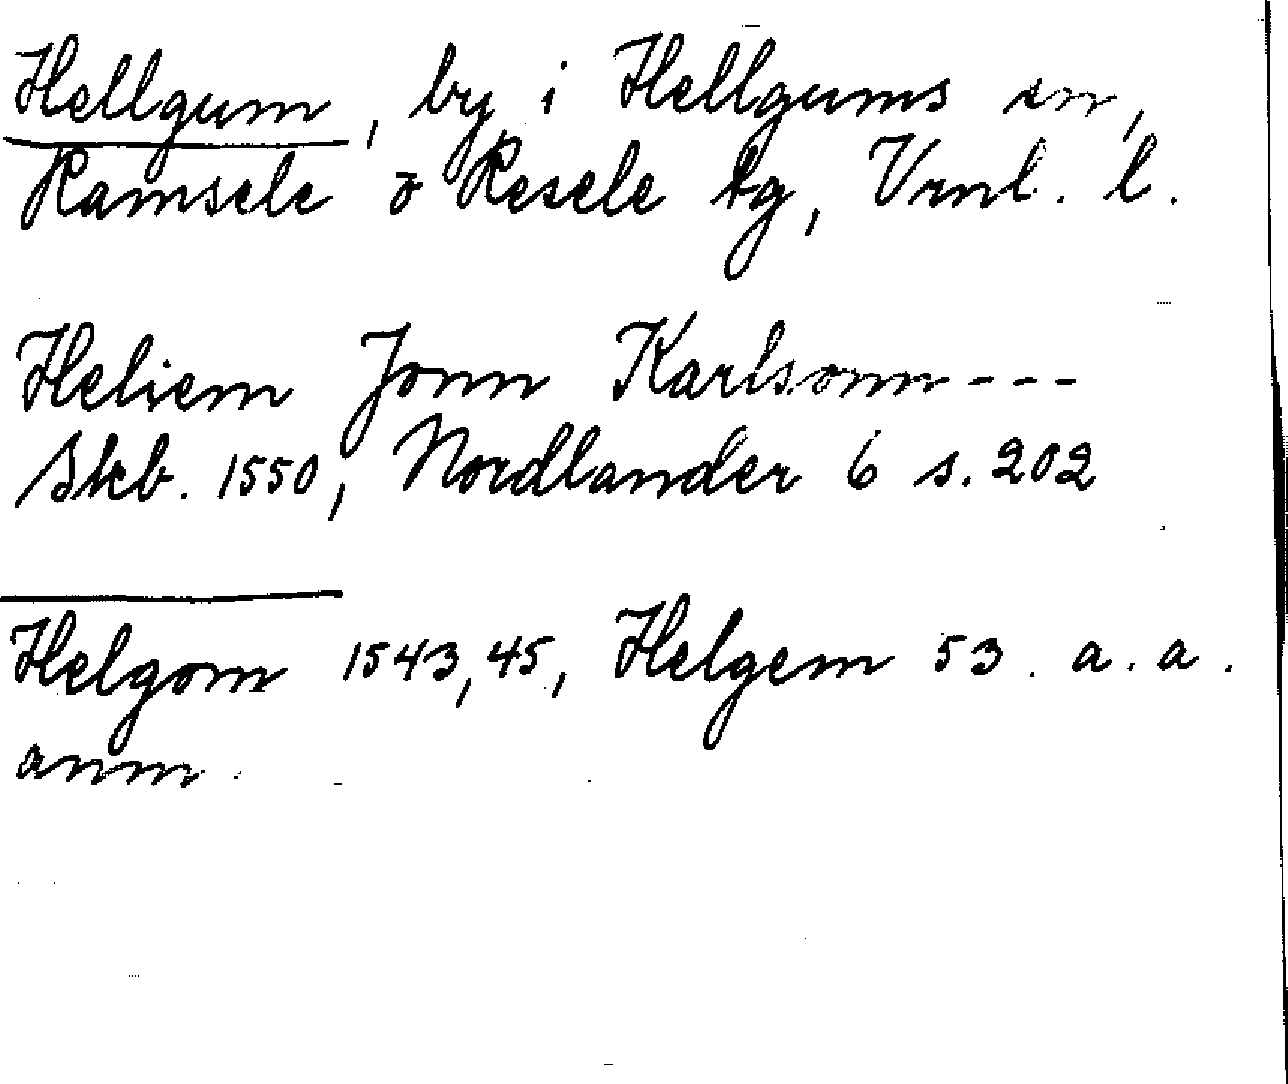 Hellgum, by i Hellgums sn,
Ramsele o Resele tg, Vrnl. l.
Heliem Jonn Karlsonn - - -
Skb. 1550, Nordlander 6 s. 202
Helgom 1543, 45, Helgem 53. a. a.
anm.